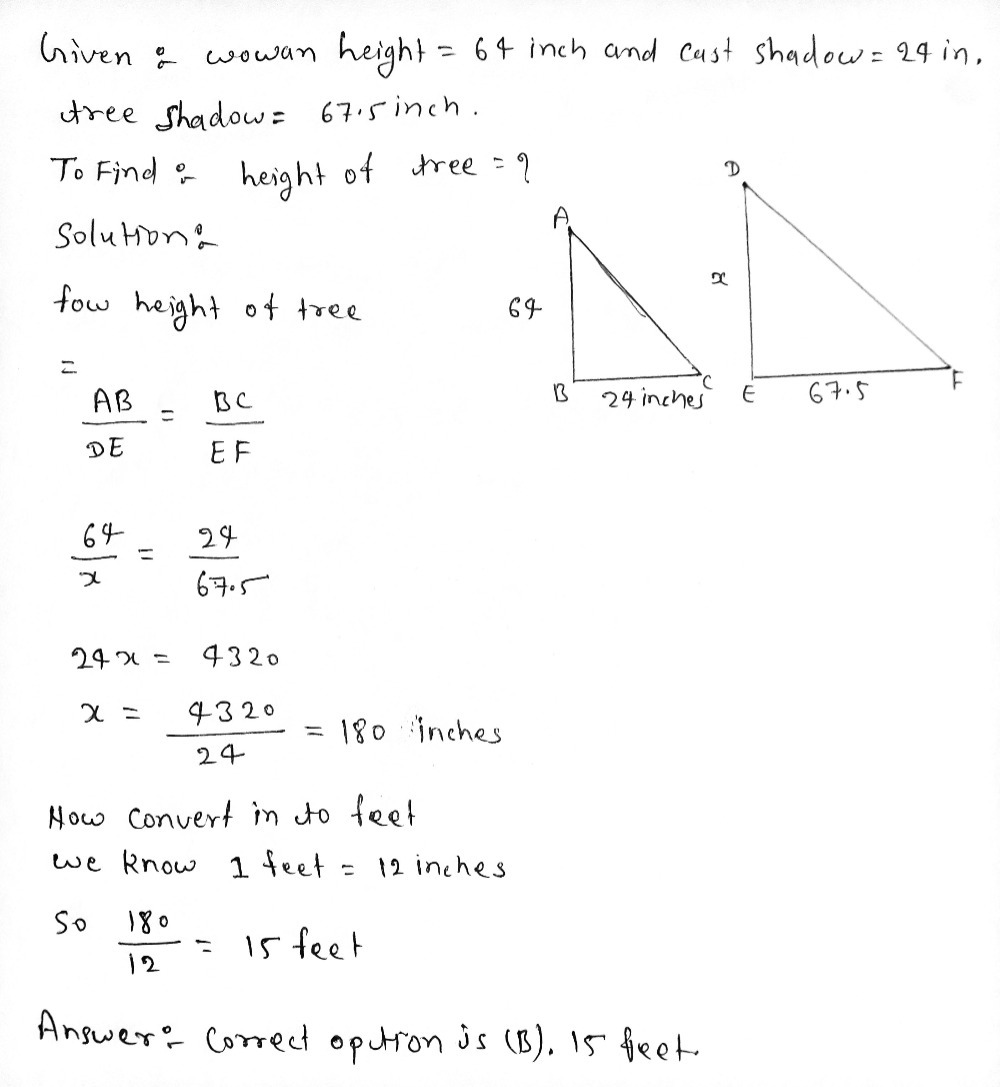 Given : wowan height = 64 inch and cast shadow = 24 in.
tree shadow = 67.5 inch.
To Find : height of tree = ?
Solution :
fow height of tree
=
AB / DE = BC / EF
64 / x = 24 / 67.5
24x = 4320
x = 4320 / 24 = 180 inches
Now convert in to feet
we know 1 feet = 12 inches
So 180 / 12 = 15 feet
Answer : Correct option is (B). 15 feet.
A
64
B
24 inches
C
D
x
E
67.5
F